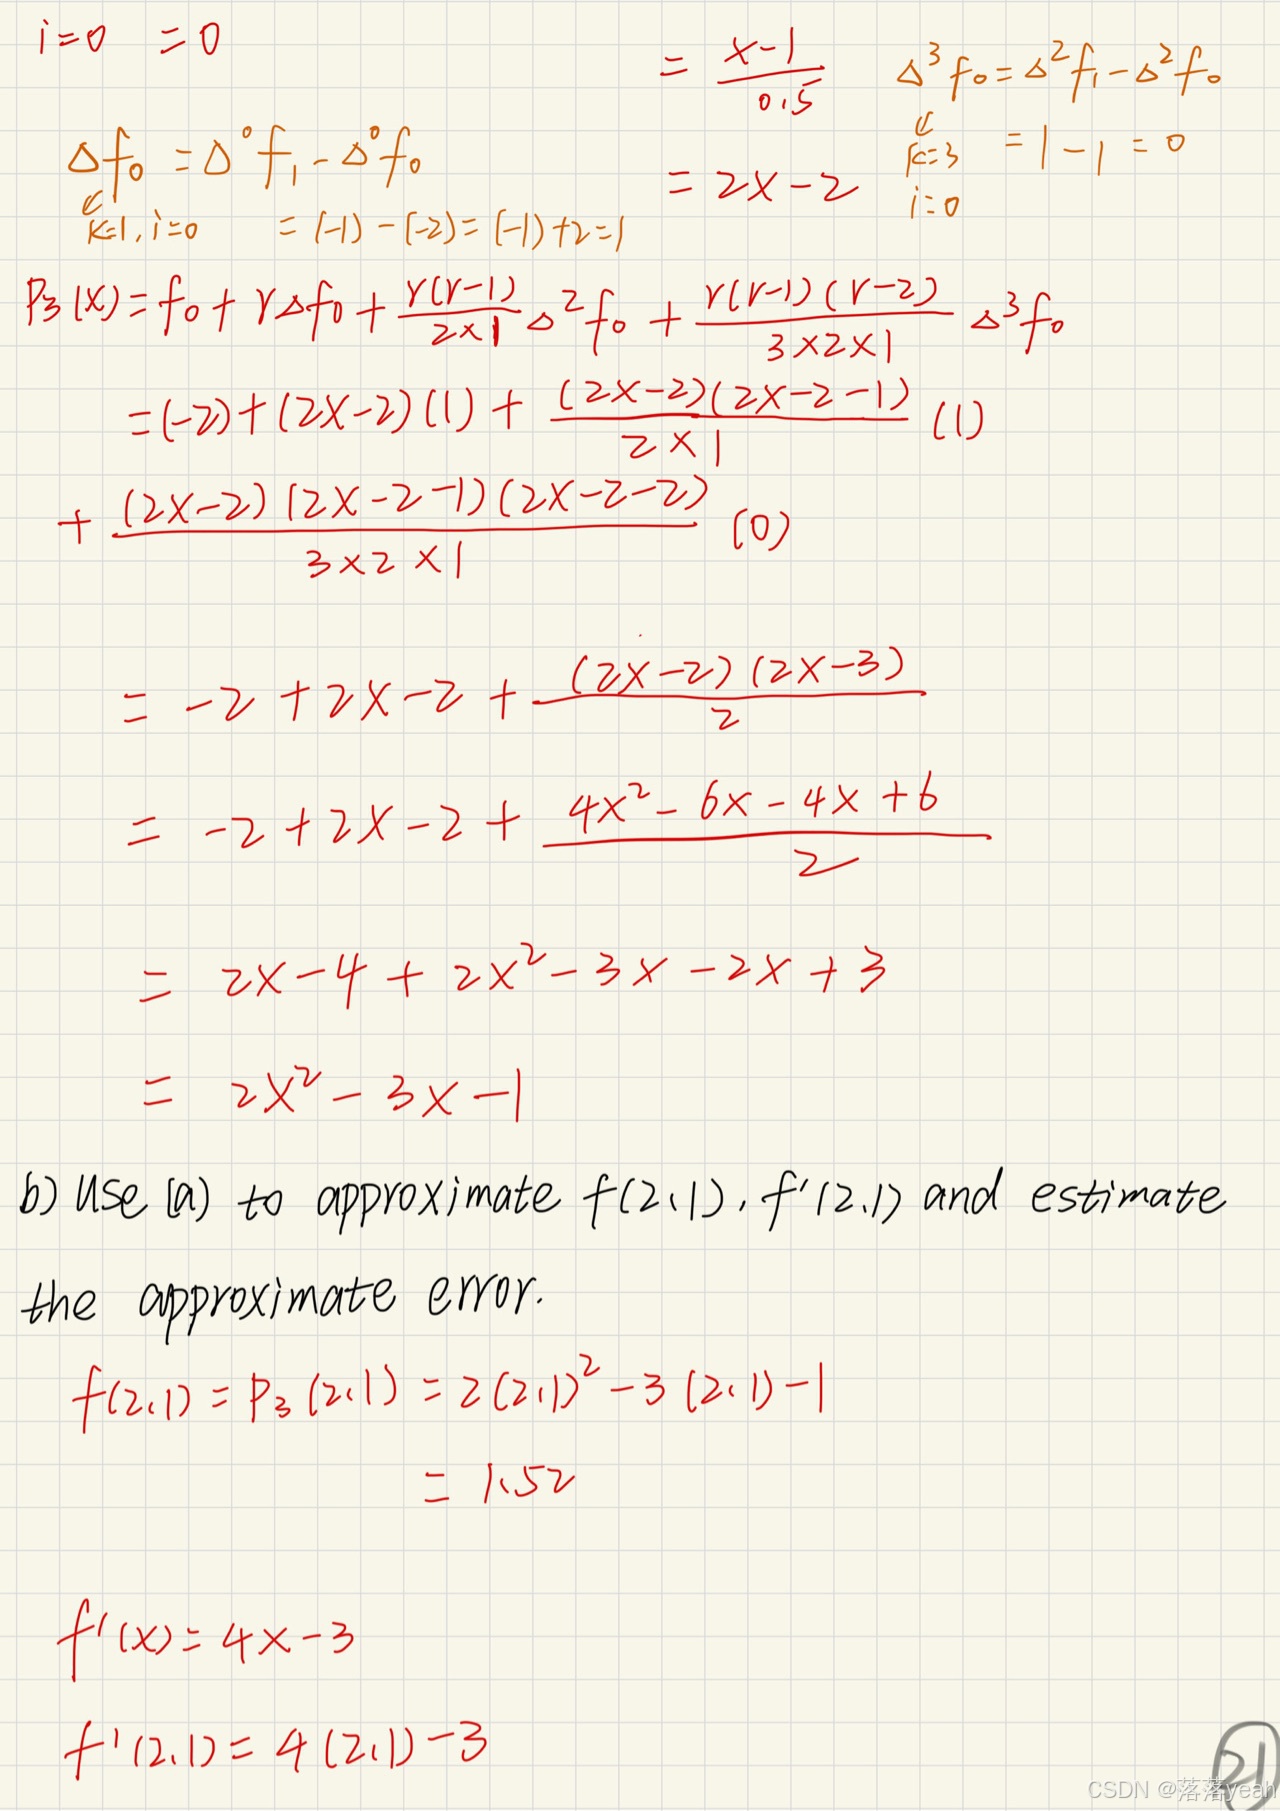 i=0 =0
= x-1 / 0.5
= 2x-2
Δ³f₀=Δ²f₁-Δ²f₀
k=3 =1-1=0
i=0
Δf₀ =Δ⁰f₁-Δ⁰f₀
k=1, i=0 =(-1)-(-2)=(-1)+2=1
P₃(x)=f₀+rΔf₀+ r(r-1) / 2×1 Δ²f₀ + r(r-1)(r-2) / 3×2×1 Δ³f₀
=(-2)+(2x-2)(1)+ (2x-2)(2x-2-1) / 2×1 (1)
+ (2x-2)(2x-2-1)(2x-2-2) / 3×2×1 (0)
= -2+2x-2+ (2x-2)(2x-3) / 2
= -2+2x-2+ 4x²-6x-4x+6 / 2
= 2x-4+2x²-3x-2x+3
= 2x²-3x-1
b) Use (a) to approximate f(2.1), f'(2.1) and estimate
the approximate error.
f(2.1)=P₃(2.1)=2(2.1)²-3(2.1)-1
= 1.52
f'(x)=4x-3
f'(2.1)=4(2.1)-3
21
CSDN @落落yeah